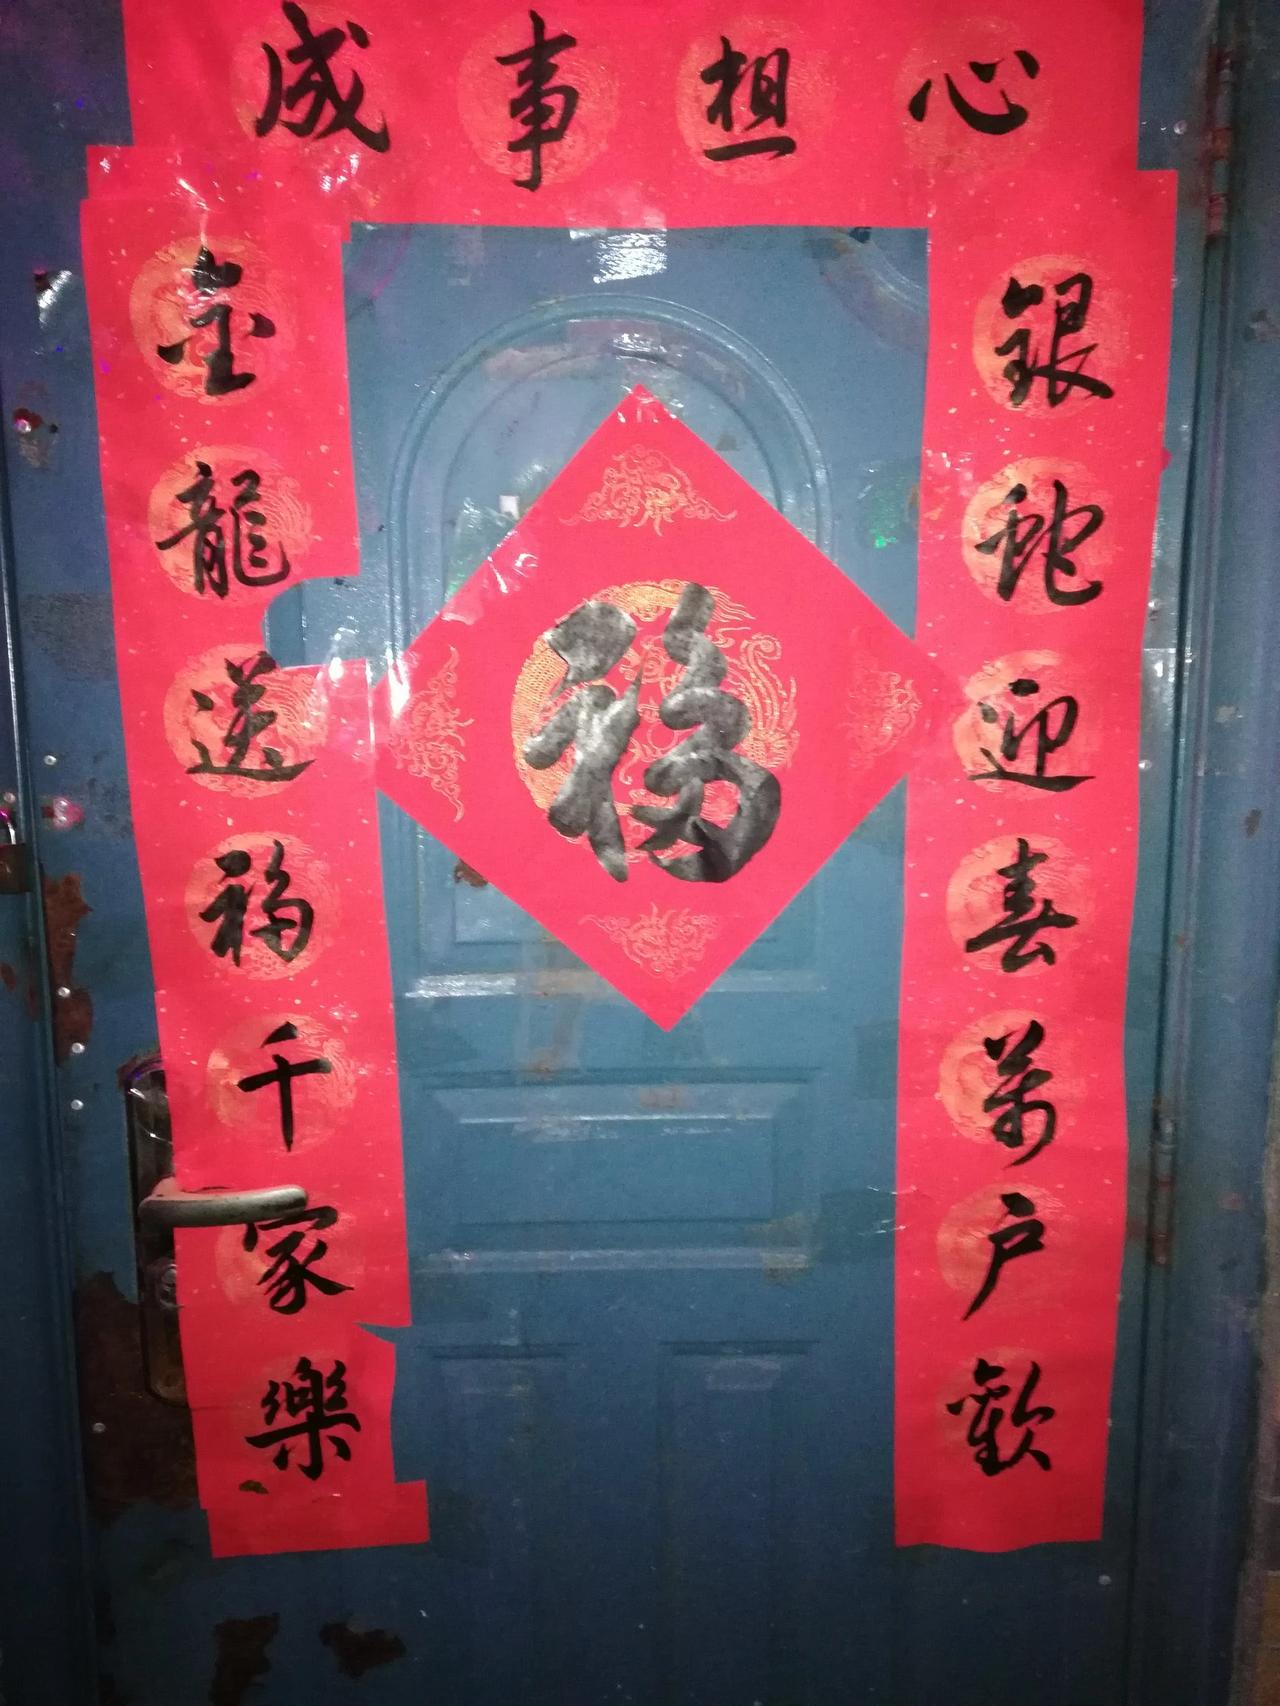 心想事成
銀蛇迎春萬户歡
金龍送福千家樂
福